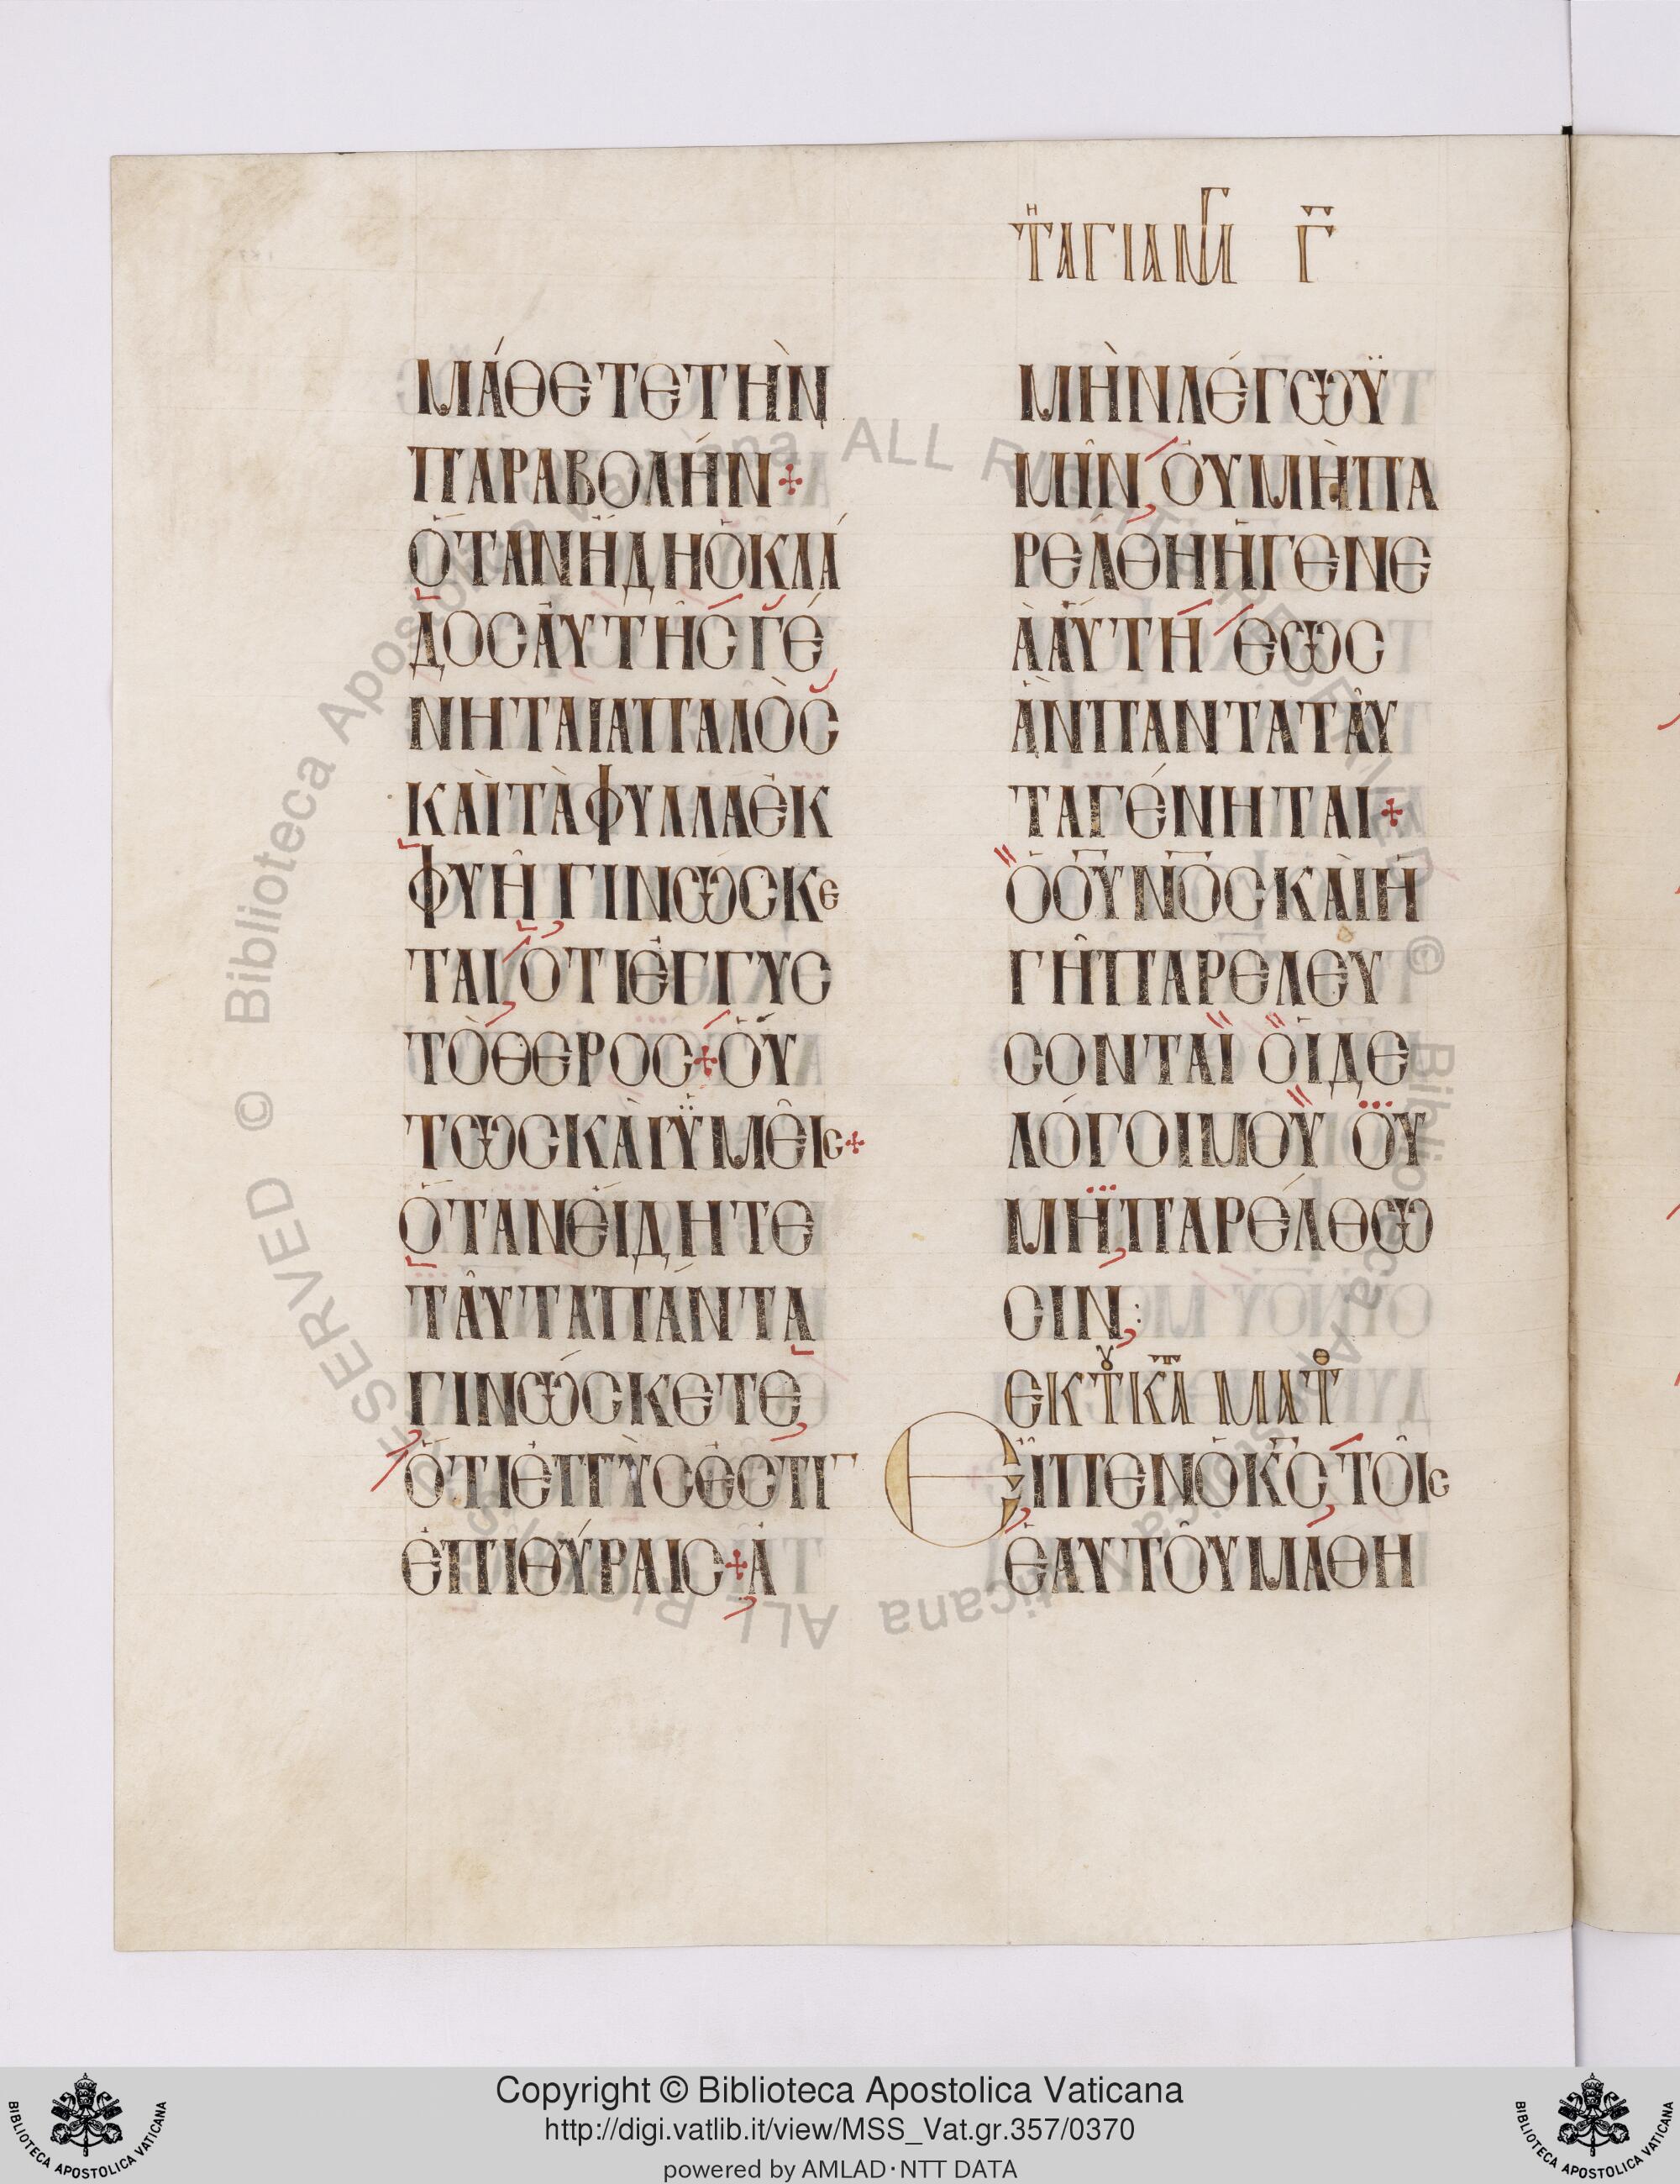 ΤΗ ΑΓΙΑ ΜΓ Γ
ΜΆΘΕΤΕΤῊΝ
ΠΑΡΑΒΟΛΉΝ
ὍΤΑΝἬΔΗὉΚΛΆ
ΔΟΣἈΥΤΗ͂ΣΓΈ
ΝΗΤΑΙΑΠΑΛῸΣ
ΚΑῚΤᾺΦΥΛΛΑἘΚ
ΦΥΗ͂ΓΙΝΏΣΚΕ
ΤΑΙὍΤΙἘΓΓΥΣ
ΤῸΘΕΡΟΣ ὍΥ
ΤΩΣΚΑῚΫΜΕΙ͂Σ
ὍΤΑΝΕΊΔΗΤΕ
ΤΑΥ͂ΤΑΠΆΝΤΑ
ΓΙΝΏΣΚΕΤΕ
ὍΤΙἘΓΓΎΣἘΣΤΙ
ἘΠΙΘΎΡΑΙΣ Ἀ
ΜῊΝΛΈΓΩΫ
ΜΙ͂Ν ὈΥΜῊΠΑ
ΡΈΛΘΗἩΓΕΝΕ
ᾺἍΥΤΗ ἘΩΣ
ἊΝΠΆΝΤΑΤΑΥ͂
ΤΑΓΈΝΗΤΑΙ
ὉΟΥΝΟΣΚΑῚἩ
ΓΗ͂ΠΑΡΕΛΕΥ
ΣΟΝΤΑΙ ὉΙΔΕ
ΛΌΓΟΙΜΟΥ ὈΥ
ΜῊΠΑΡΈΛΘΩ
ΣΙΝ:
ΕΚ ΤΟΥ ΚΑΤΑ ΜΑΤΘ
ἘΙ͂ΠΕΝὉΚΣ ΤΟΙ͂Σ
ἙΑΥΤΟΥ͂ΜΑΘΗ
Copyright © Biblioteca Apostolica Vaticana
http://digi.vatlib.it/view/MSS_Vat.gr.357/0370
powered by AMLAD·NTT DATA
BIBLIOTECA APOSTOLICA VATICANA
BIBLIOTECA APOSTOLICA VATICANA
© Biblioteca Apostolica Vaticana ALL RIGHTS RESERVED © Biblioteca Apostolica Vaticana ALL RIGHTS RESERVED